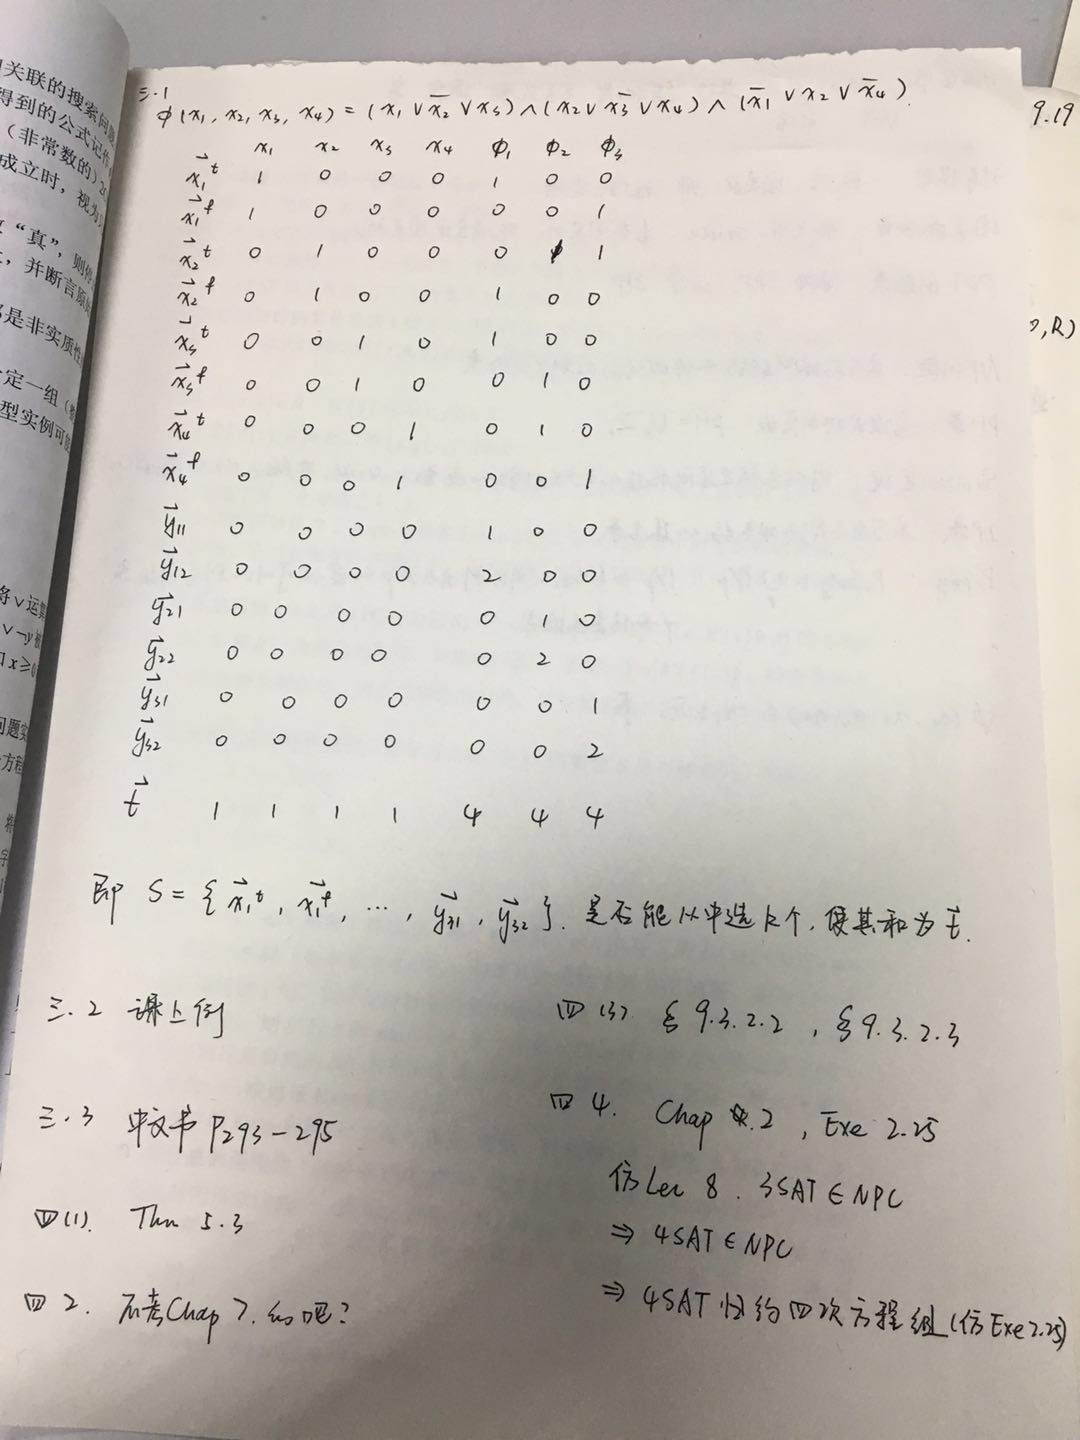 关联的搜索问题
得到的公式记作
(非常数的)
成立时，视为
“真”，则停
，并断言原
是非实质性
定一组（整
型实例可能
将∨运算
∨¬y被
x≥0
问题实
方程
三.1
φ(x₁, x₂, x₃, x₄) = (x₁ ∨ x̄₂ ∨ x₃) ∧ (x₂ ∨ x̄₃ ∨ x₄) ∧ (x̄₁ ∨ x₂ ∨ x̄₄).
9.19
x₁ x₂ x₃ x₄ φ₁ φ₂ φ₃
x⃗₁ᵗ 1 0 0 0 1 0 0
x⃗₁ᶠ 1 0 0 0 0 0 1
x⃗₂ᵗ 0 1 0 0 0 1 1
x⃗₂ᶠ 0 1 0 0 1 0 0
x⃗₃ᵗ 0 0 1 0 1 0 0
x⃗₃ᶠ 0 0 1 0 0 1 0
x⃗₄ᵗ 0 0 0 1 0 1 0
x⃗₄ᶠ 0 0 0 1 0 0 1
y⃗₁₁ 0 0 0 0 1 0 0
y⃗₁₂ 0 0 0 0 2 0 0
y⃗₂₁ 0 0 0 0 0 1 0
y⃗₂₂ 0 0 0 0 0 2 0
y⃗₃₁ 0 0 0 0 0 0 1
y⃗₃₂ 0 0 0 0 0 0 2
t⃗ 1 1 1 1 4 4 4
, R)
即 S = { x⃗₁ᵗ, x⃗₁ᶠ, …, y⃗₃₁, y⃗₃₂ }. 是否能从中选k个, 使其和为 t⃗.
三.2 课上例
四(3). § 9.3.2.2 , § 9.3.2.3
三.3 中文书 P293-295
四4. Chap 2 , Exe 2.25
仿Lec 8. 3SAT ∈ NPC
四(1). Thm 5.3
⇒ 4SAT ∈ NPC
四2. 不考Chap 7. 吧?
⇒ 4SAT 归约四次方程组(仿Exe 2.25)